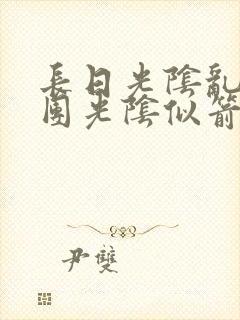 長日光陰亂
團光陰似箭
尹雙